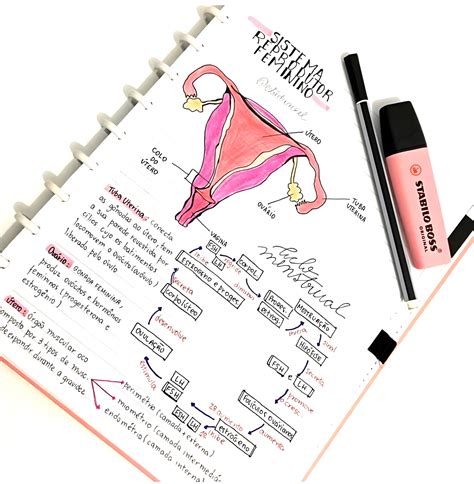 SISTEMA
REPRODUTOR
FEMININO
ÚTERO
COLO
DO
ÚTERO
TUBA
UTERINA
OVÁRIO
VAGINA
Tuba Uterina: Conecta
as gônadas ao útero tem
a sua parede revestida por
cílios cujo os batimentos
locomovem o ovócito (óvulo)
liberado pelo ovário
Ovário: GÔNADA FEMININA,
produz ovócitos e hormônios
femininos (progesterona e
estrogênio)
Útero: Órgão muscular oco
composto por 3 tipos de musc.
se expandir durante a gravidez
perimétrio (camada externa)
miométrio (camada intermediária
endométrio (camada interna)
Ciclo
menstrual
MENSTRUAÇÃO
HIPÓFISE
secreta
FSH e LH
promove
cresc.
FOLÍCULOS OVARIANOS
aumenta
estrogênio
inibe
aumento
FSH
LH
LH
FSH
estimula
OVULAÇÃO
desenvolve
CORPO LÚTEO
secreta
ESTROGÊNIO E PROGES.
inibe
FSH
LH
CORPO L.
diminui
PROGES.
ESTROG.
STABILO BOSS
ORIGINAL